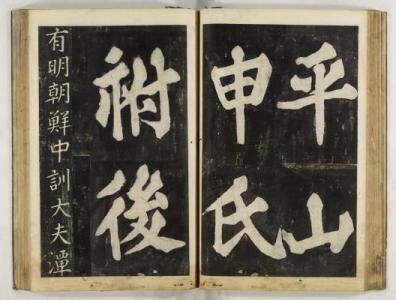 平山
申氏
祔後
有明朝鮮中訓大夫潭